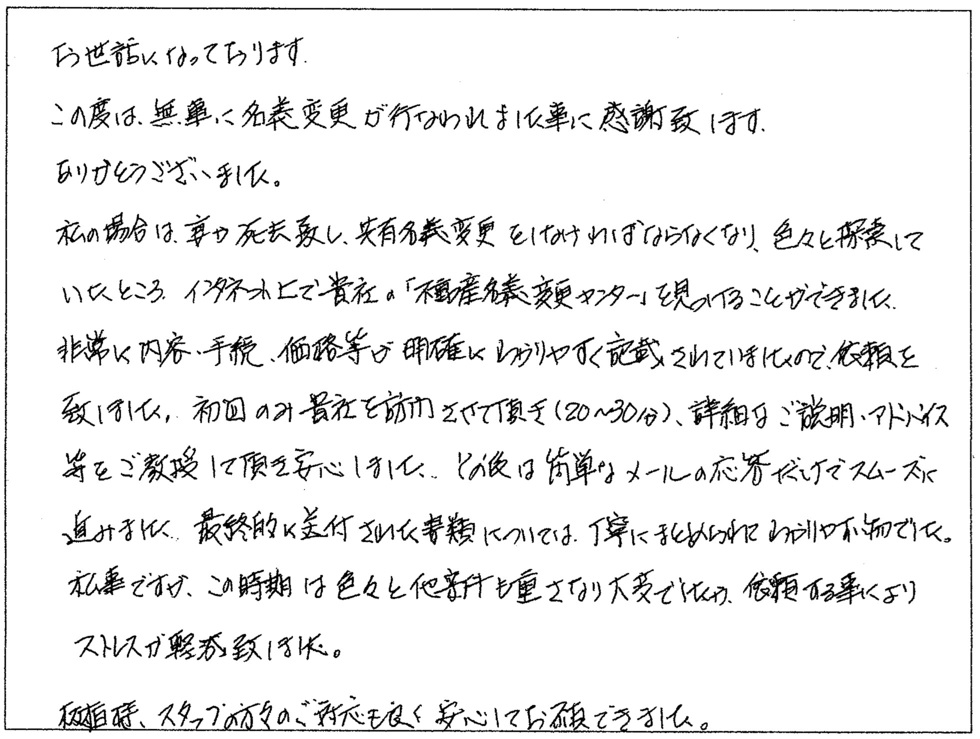 お世話になっております.
この度は、無事に名義変更が行なわれました事に感謝致します.
ありがとうございました。
私の場合は、妻が死去致し、共有名義変更をしなければならなくなり、色々と探索して
いたところ、インターネット上で貴社の「不動産名義変更センター」を見つけることができました.
非常に内容、手続、価格等が明確にわかりやすく記載されていましたので、依頼を
致しました. 初回のみ貴社を訪問させて頂き(20~30分)、詳細なご説明・アドバイス
等をご教授して頂き安心しました. その後は簡単なメールの応答だけでスムーズに
進みました. 最終的に送付された書類については、丁寧にまとめられてわかりやすい物でした。
私事ですが、この時期は色々と他案件も重さなり大変でしたが、依頼する事により
ストレスが軽減致しました。
様、スタッフの方々のご対応も良く安心してお願いできました。